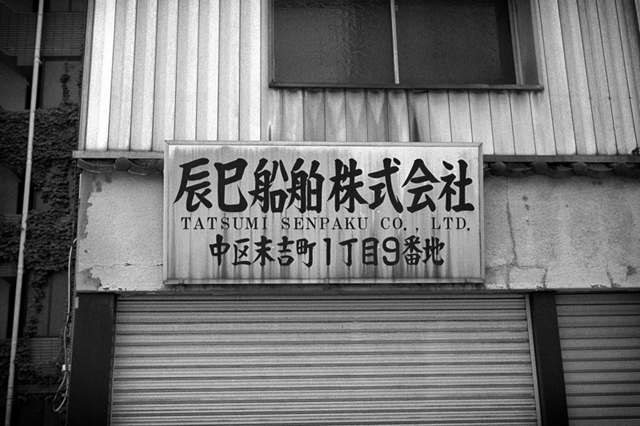 辰巳船舶株式会社
TATSUMI SENPAKU CO., LTD.
中区末吉町1丁目9番地